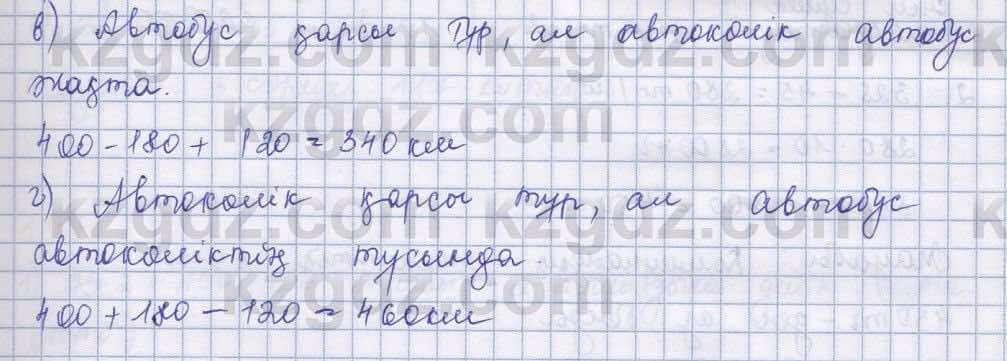 в) Автобус қарсы тұр, ал автокөлік автобус
жақта.
400 - 180 + 120 = 340 км
г) Автокөлік қарсы тұр, ал автобус
автокөліктің тұсында.
400 + 180 - 120 = 460 км
kzgdz.com